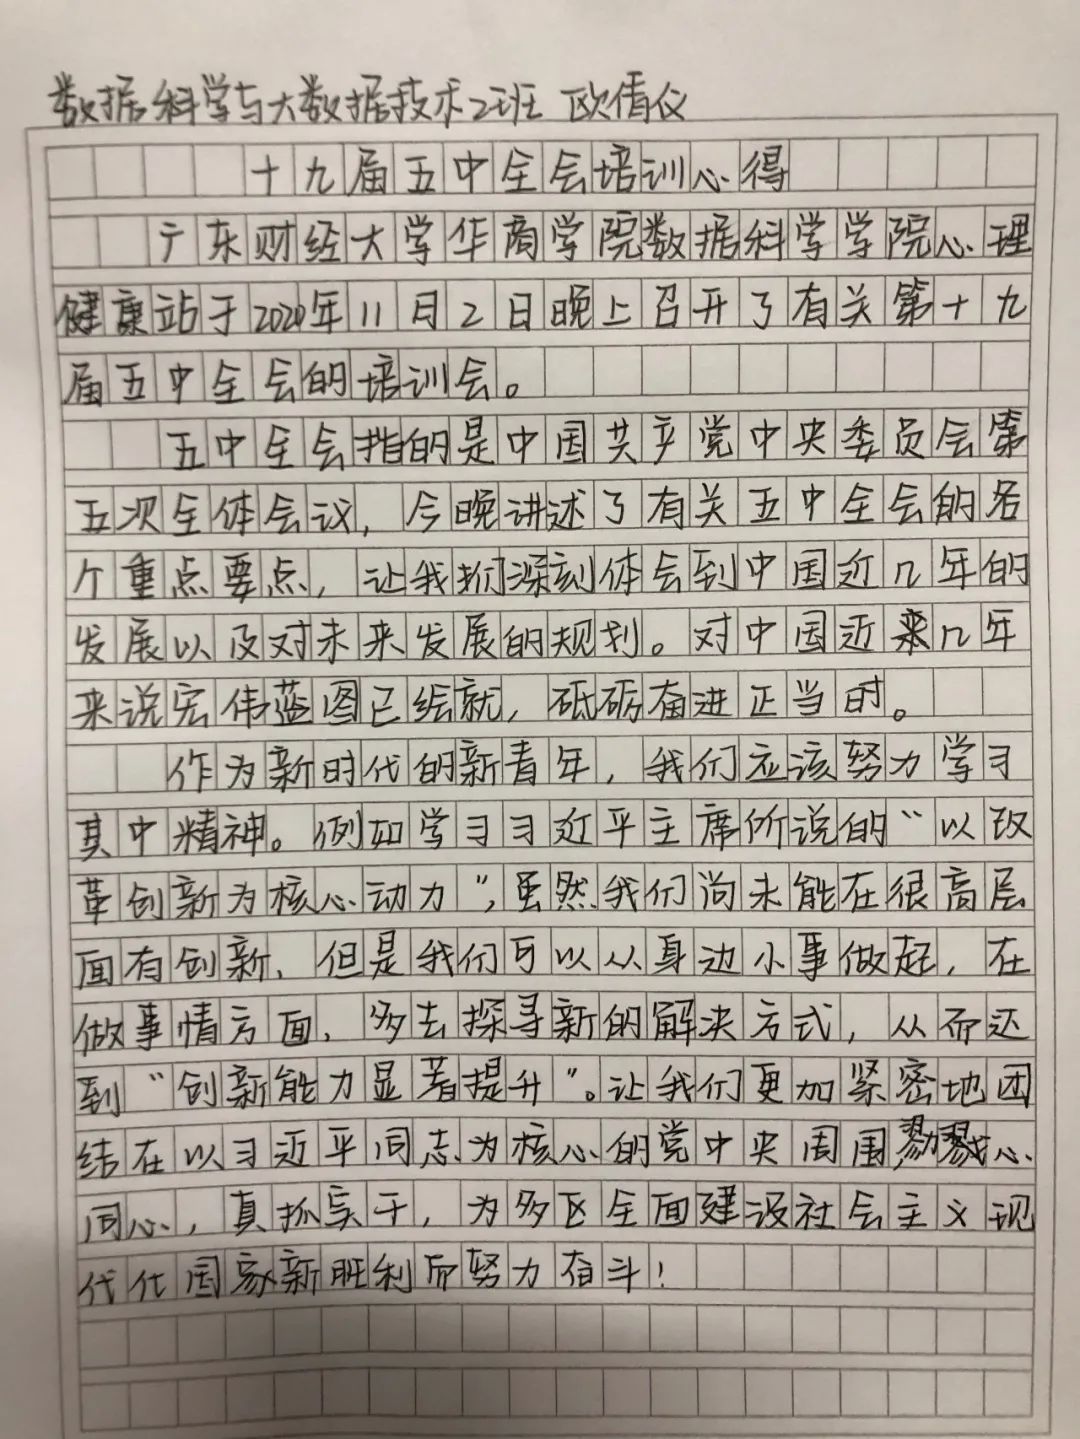 数据科学与大数据技术2班 欧倩仪
十九届五中全会培训心得
广东财经大学华商学院数据科学学院心理
健康站于2020年11月2日晚上召开了有关第十九
届五中全会的培训会。
五中全会指的是中国共产党中央委员会第
五次全体会议，今晚讲述了有关五中全会的各
个重点要点，让我们深刻体会到中国近几年的
发展以及对未来发展的规划。对中国近来几年
来说宏伟蓝图已绘就，砥砺奋进正当时。
作为新时代的新青年，我们应该努力学习
其中精神。例如学习习近平主席所说的“以改
革创新为核心动力”，虽然我们尚未能在很高层
面有创新，但是我们可以从身边小事做起，在
做事情方面，多去探寻新的解决方式，从而达
到“创新能力显著提升”。让我们更加紧密地团
结在以习近平同志为核心的党中央周围，勠心
同心，真抓实干，为夺区全面建设社会主义现
代化国家新胜利而努力奋斗！